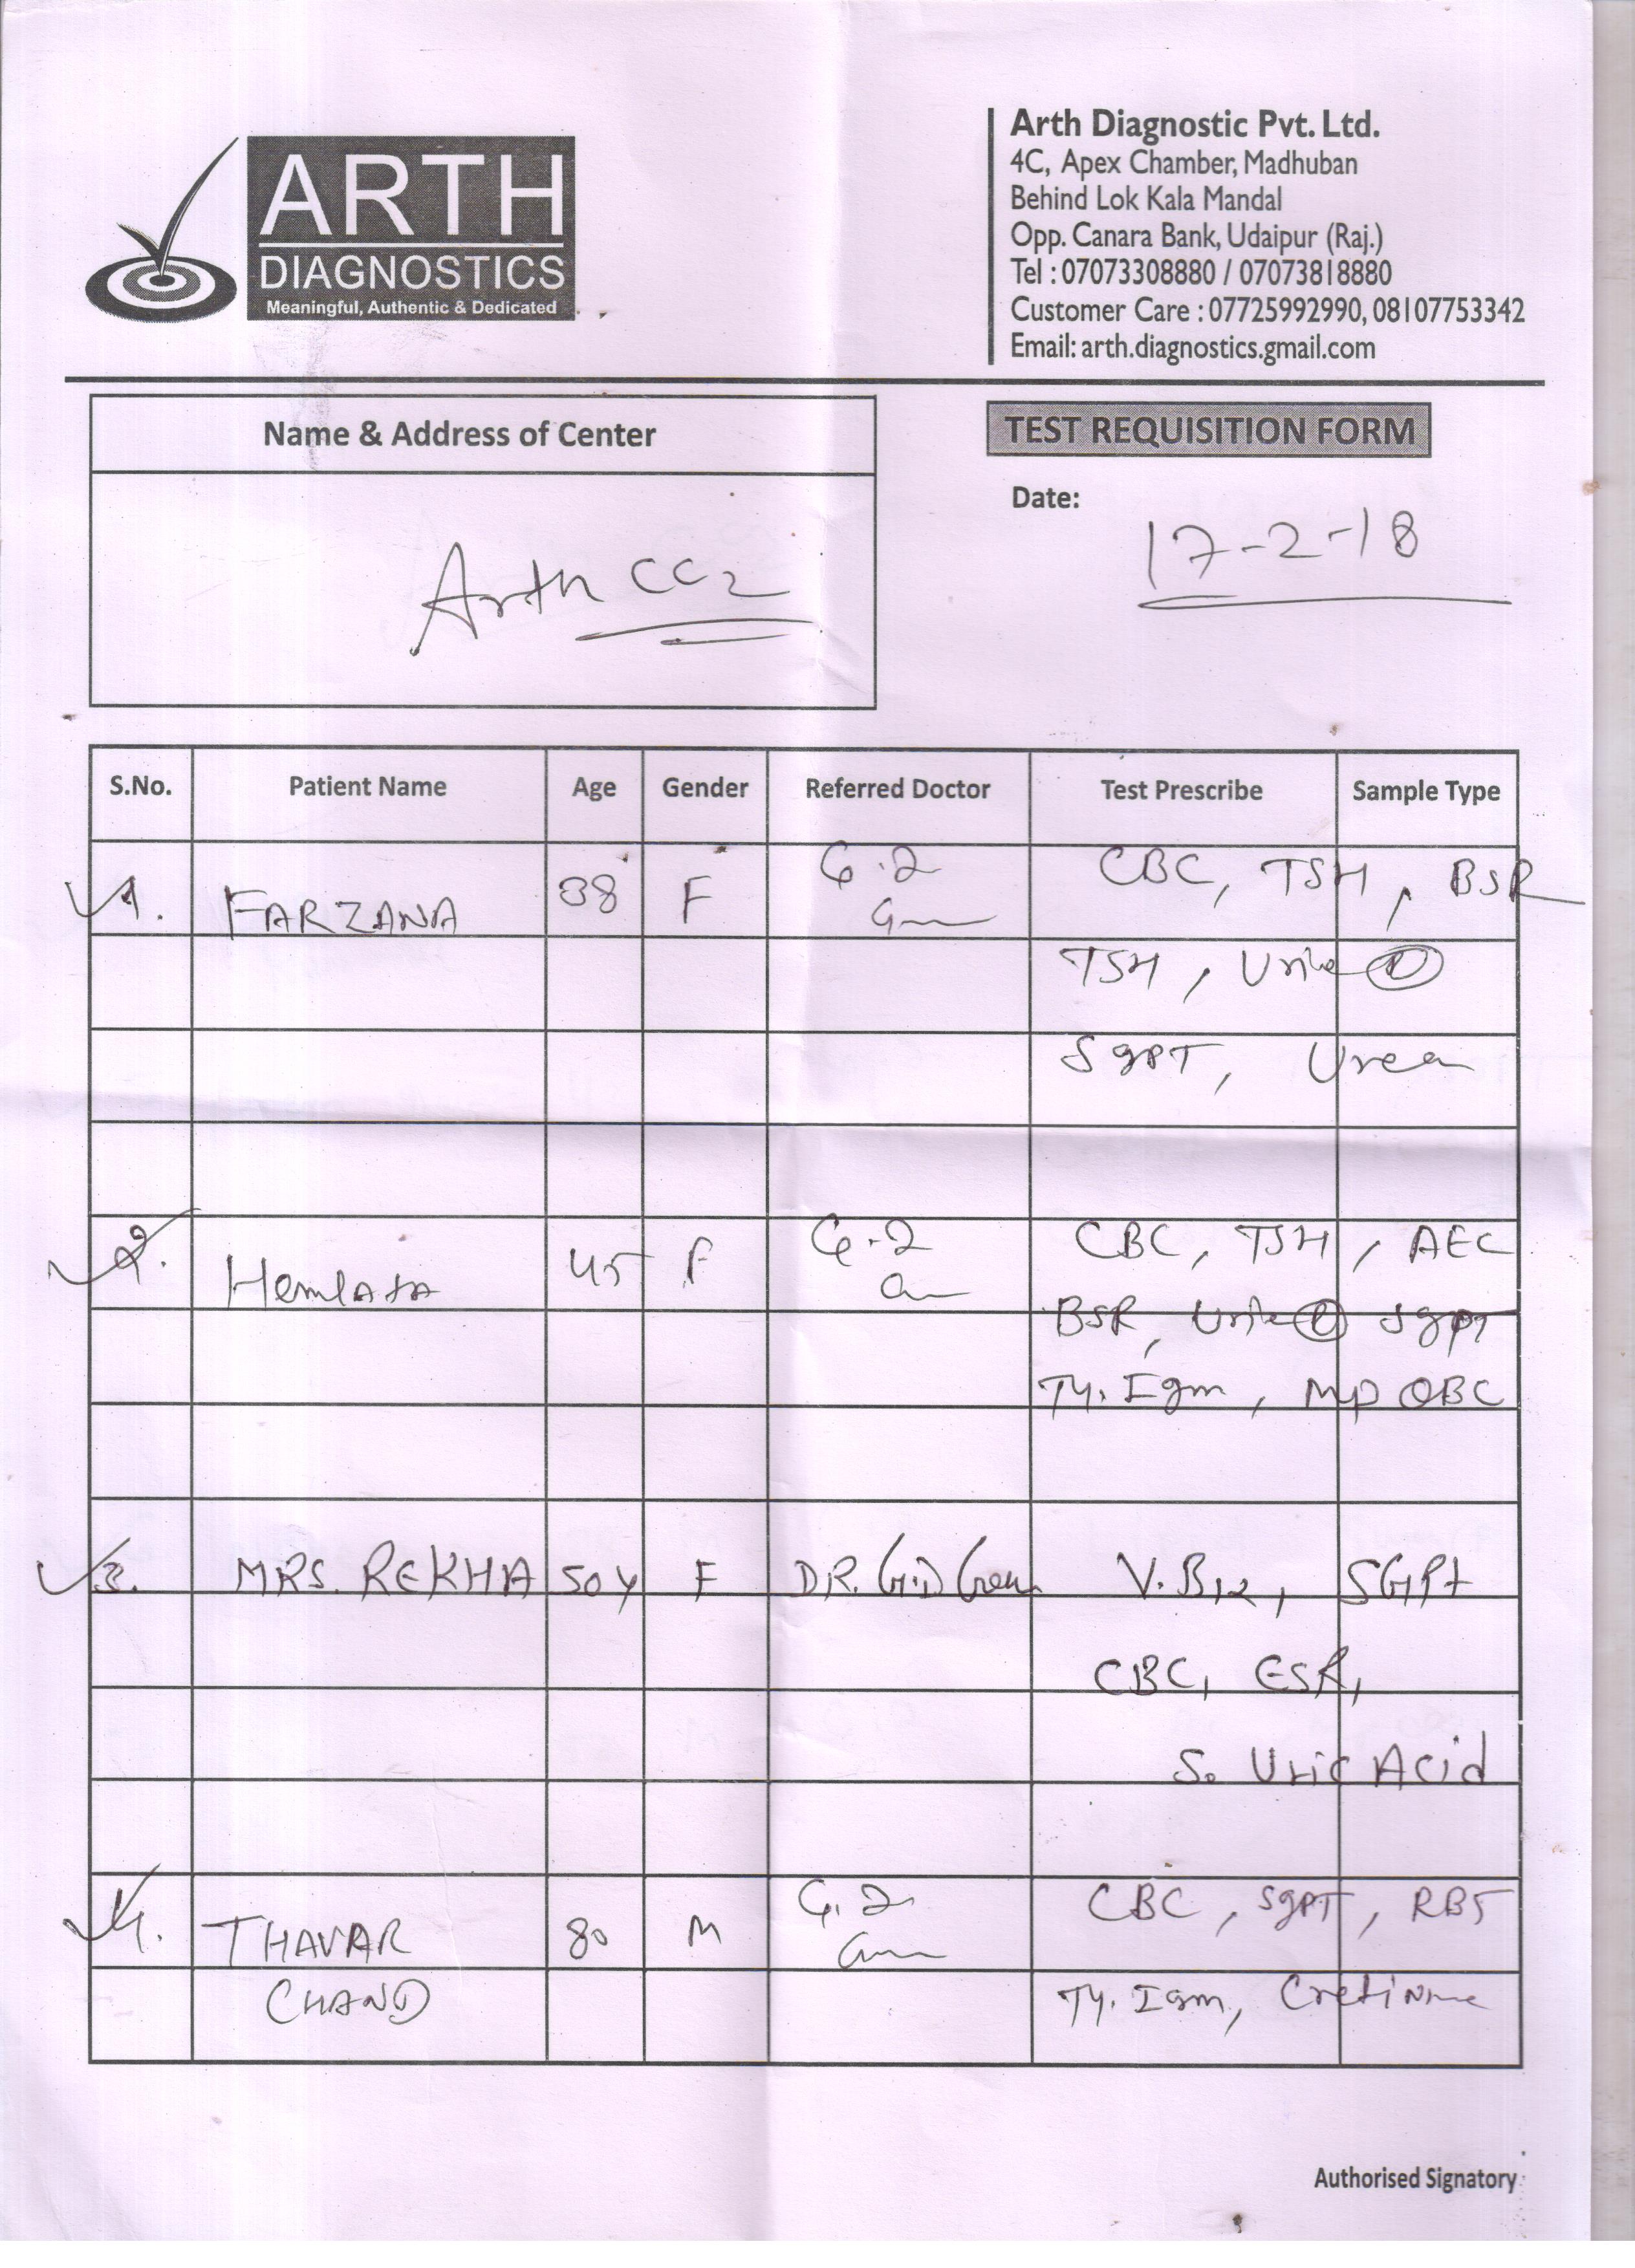 ARTH
DIAGNOSTICS
Meaningful, Authentic & Dedicated
Arth Diagnostic Pvt. Ltd.
4C, Apex Chamber, Madhuban
Behind Lok Kala Mandal
Opp. Canara Bank, Udaipur (Raj.)
Tel : 07073308880 / 07073818880
Customer Care : 07725992990, 08107753342
Email: arth.diagnostics.gmail.com
Name & Address of Center
Arth CC2
TEST REQUISITION FORM
Date:
17-2-18
S.No. Patient Name Age Gender Referred Doctor Test Prescribe Sample Type
1. FARZANA 38 F CBC, TSH, BSR
TSH, Urine (R)
SgPT, Urea
2. HemlAtA 45 F CBC, TSH, AEC
BSR, Urine (R) Sgpt
Ty. Igm, MP QBC
3. MRS. REKHA 50 Y F DR. V.B12, SGPt
CBC, ESR,
S. Uric Acid
4. THAVAR 80 M CBC, SgPT, RBS
CHAND Ty. Igm, Cretinine
Authorised Signatory